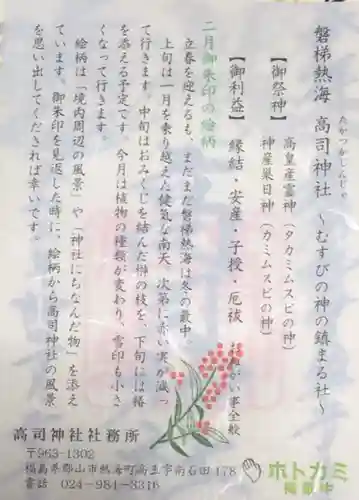 たかつかしんじゃ
磐梯熱海 高司神社 ～むすびの神の鎮まる社～
【御祭神】 高皇産霊神(タカミムスビの神)
神産巣日神(カミムスビの神)
【御利益】 縁結・安産・子授・厄祓 お願い事全般
二月御朱印の絵柄
立春を迎えるも、まだまだ磐梯熱海は冬の最中。
上旬は一月を乗り越えた健気な南天。次第に赤い実が減っ
て行きます。中旬はおみくじを結んだ榊の枝を、下旬には椿
を添える予定です。今月は植物の種類が変わり、雪印も小さ
くなって行きます。
絵柄は「境内周辺の風景」や「神社にちなんだ物」を添え
ています。御朱印を見返した時に、絵柄から高司神社の風景
を思い出してくだされば幸いです。
高司神社社務所
〒963-1302
福島県郡山市熱海町高玉字南石田178
電話 024-984-8316
ホトカミ